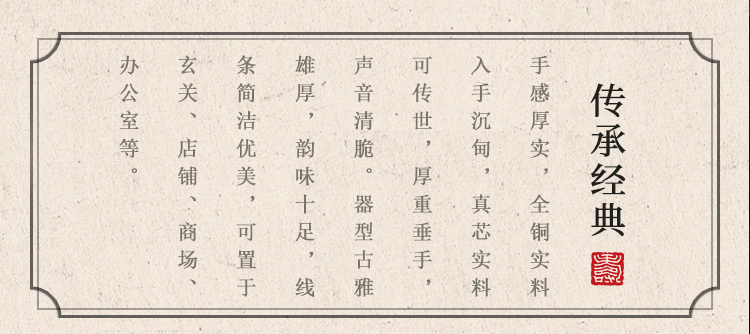 传承经典
手感厚实，全铜实料
入手沉甸，真芯实料
可传世，厚重垂手，
声音清脆。器型古雅
雄厚，韵味十足，线
条简洁优美，可置于
玄关、店铺、商场、
办公室等。